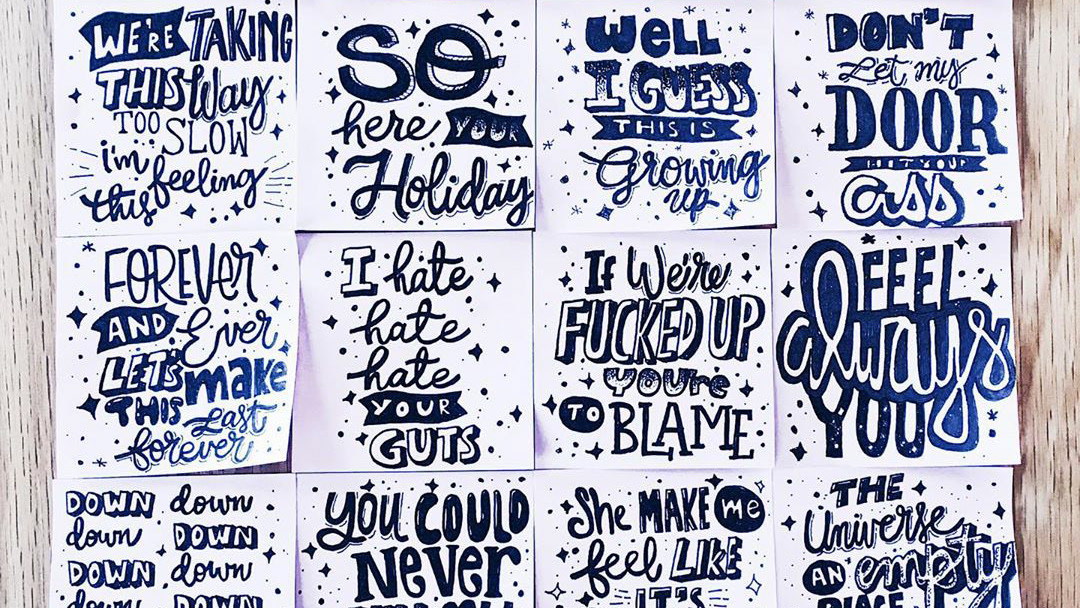 WE'RE TAKING
THIS Way
TOO SLOW
i'm feeling
this
SO
here YOUR
Holiday
WELL
I GUESS
THIS IS
Growing
up
DON'T
Let my
DOOR
HIT YOUR
ass
FOREVER
AND Ever
LET'S make
THIS Last
forever
I hate
hate
hate
YOUR
GUTS
If We're
FUCKED UP
YOU're
TO BLAME
FEEL
always
YOU
DOWN down
down DOWN
DOWN down
down DOWN
YOU COULD
Never
She MAKE me
feel LIKE
IT'S
THE
Universe
AN empty